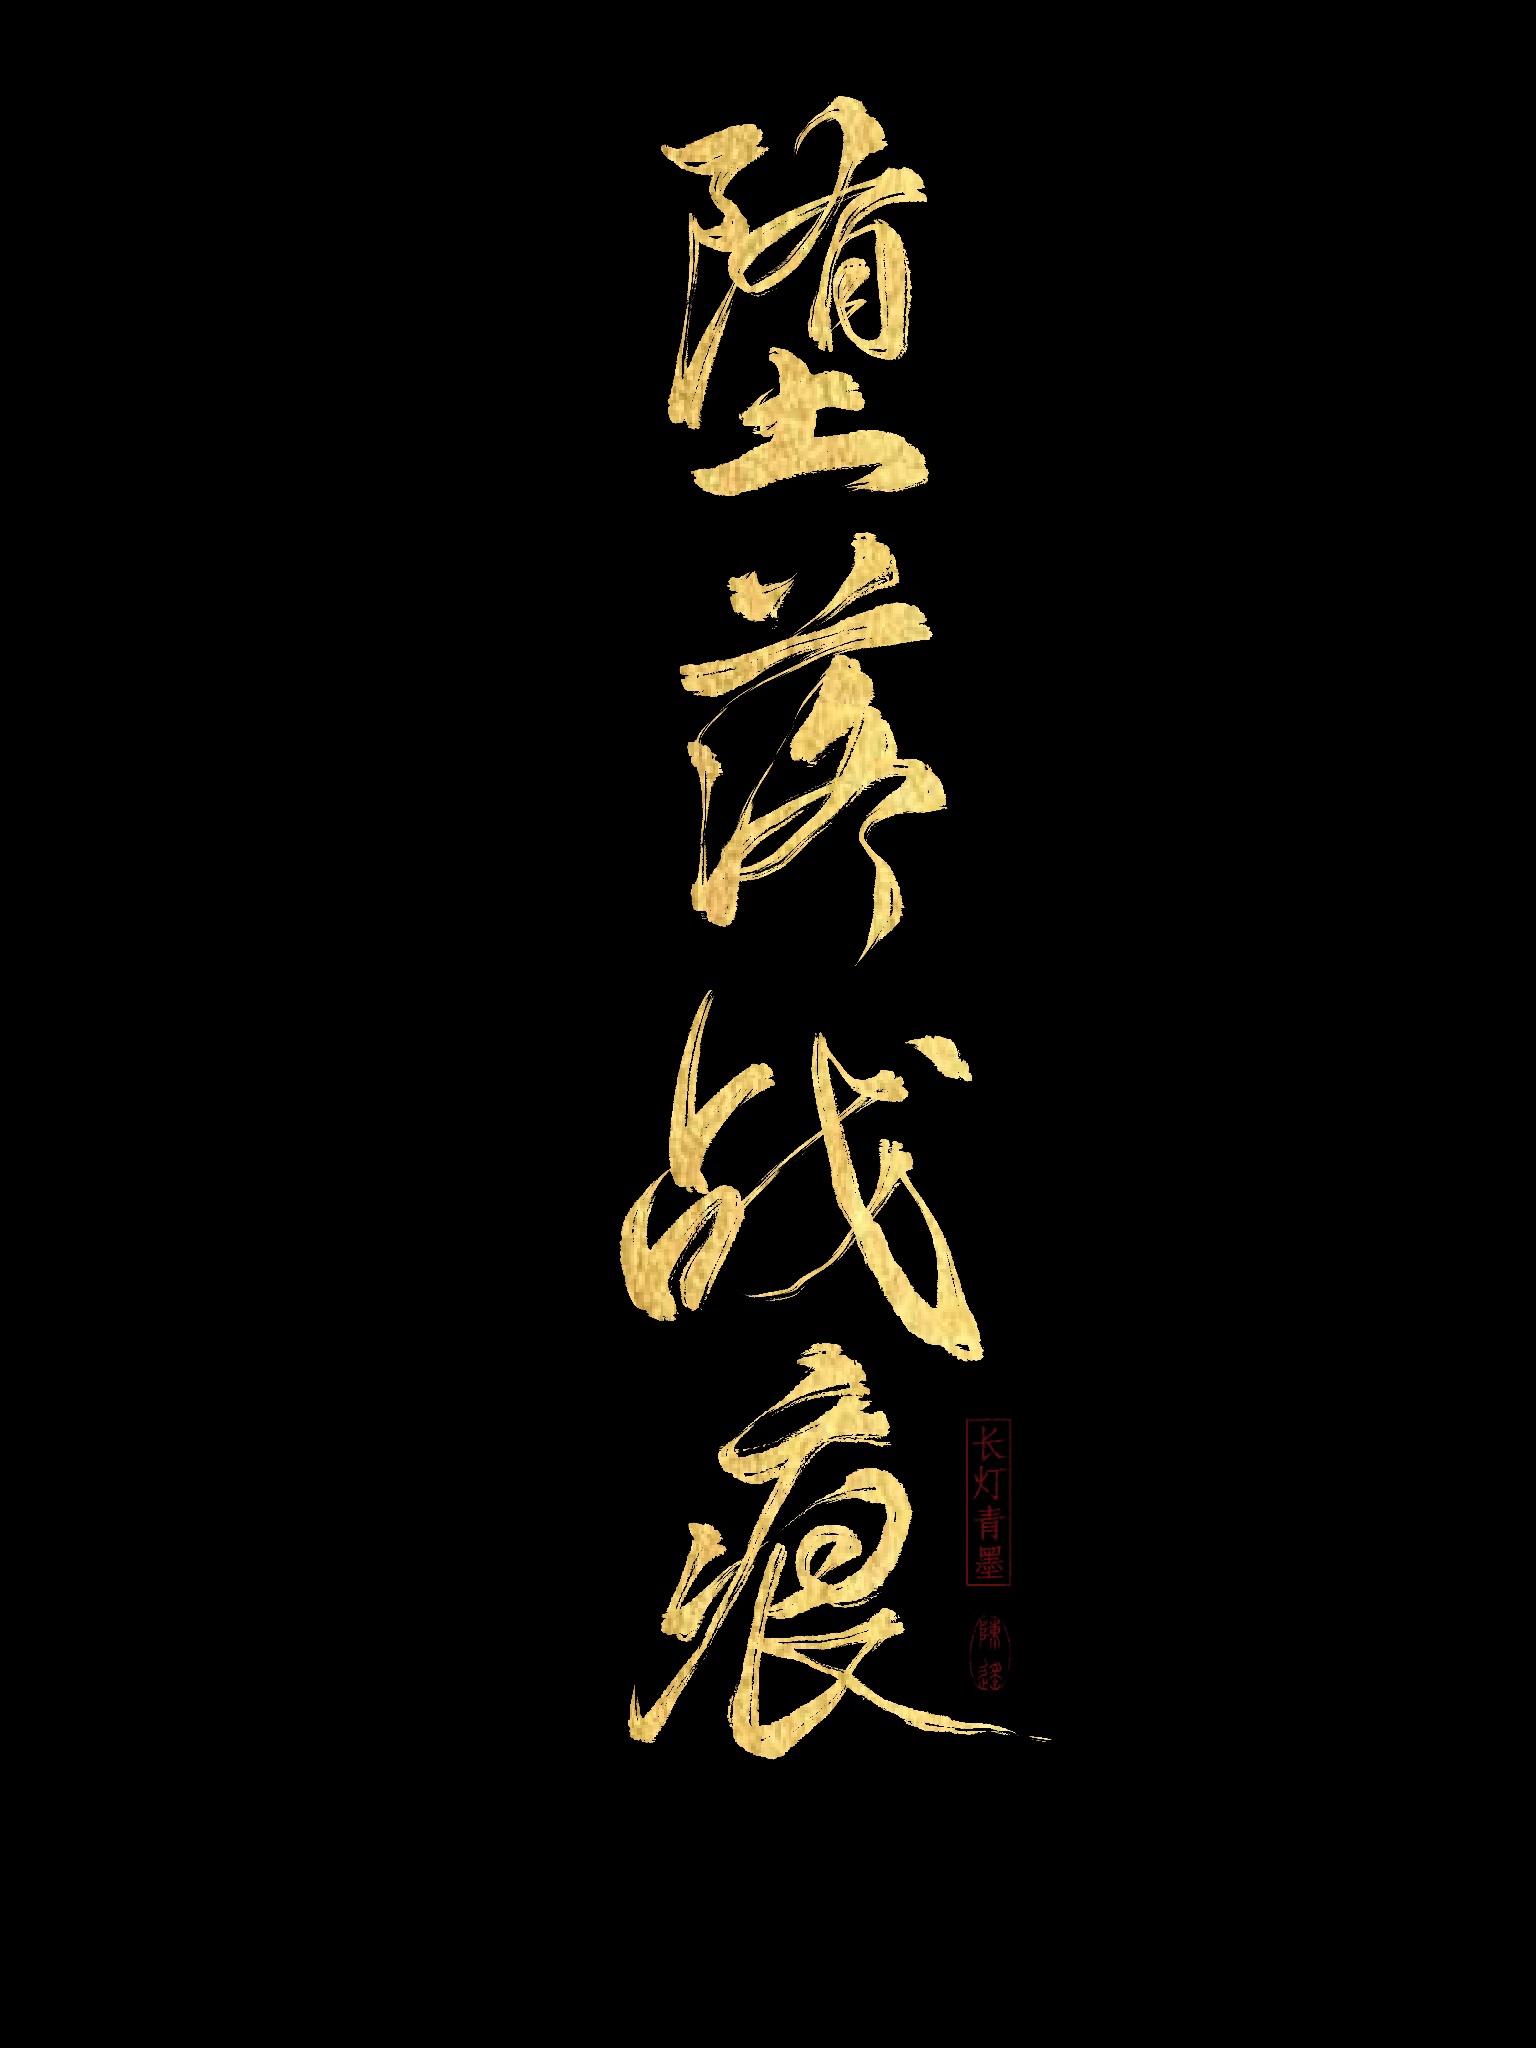 堕落战痕
长灯青墨
陳遥